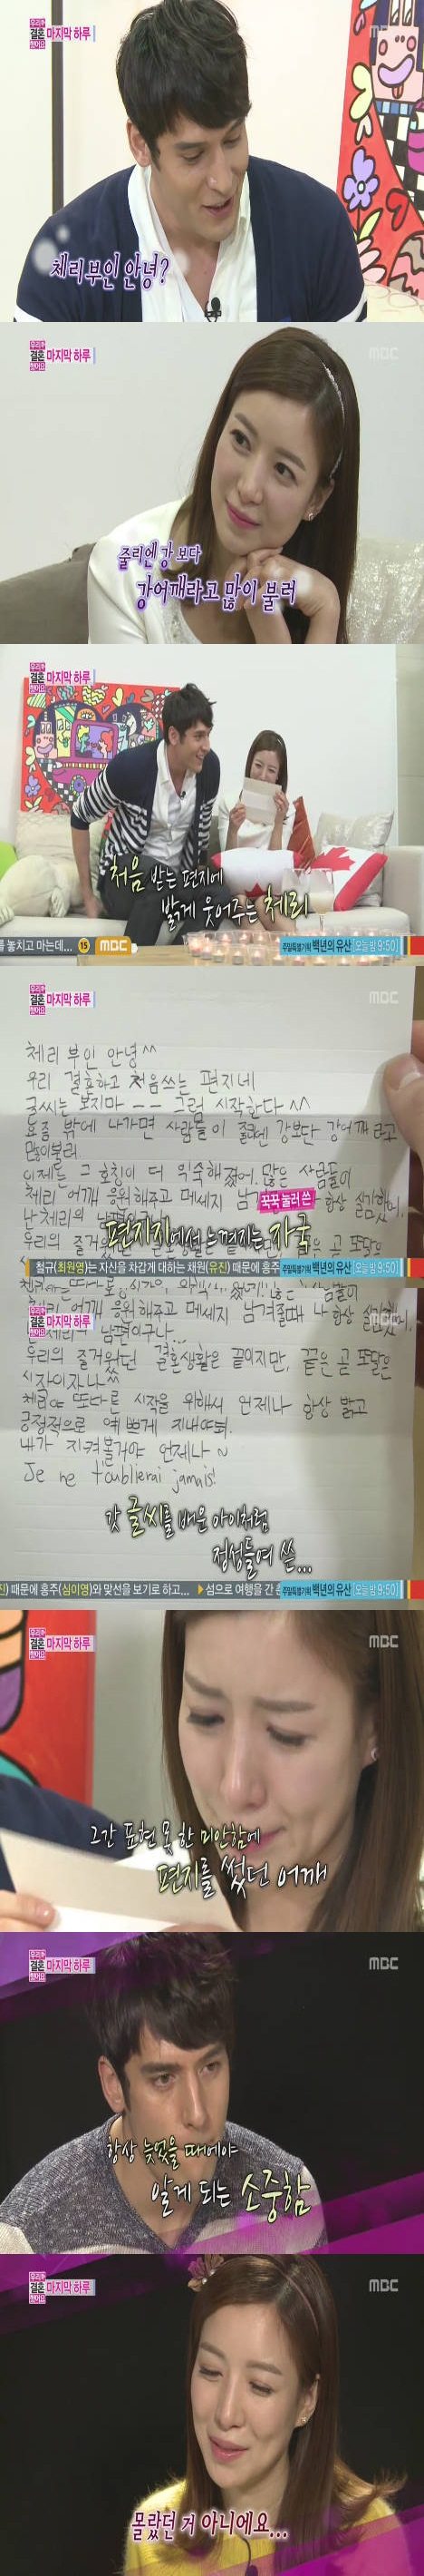 우리 결혼했어요 마지막 하루
MBC
체리부인 안녕?
우리 결혼했어요 마지막 하루
MBC
줄리엔 강 보다
강어깨라고 많이 불러
우리 결혼했어요 마지막 하루
처음 받는 편지에
밝게 웃어주는 체리
를 놓치고 마는데... 15 MBC
주말특별기획 백년의 유산 [오늘 밤 9:50]
우리 결혼했어요 마지막 하루
MBC
체리 부인 안녕^^
우리 결혼하고 처음쓰는 편지네
글씨는 보지마 ㅡㅡ 그럼 시작한다 ^^
요즘 밖에 나가면 사람들이 줄리엔 강보다 강어깨라고
많이불러
이제는 그 호칭이 더 익숙해졌어 많은 사람들이
체리 어깨 응원해주고 메세지 남겨 항상 실감했어
난 체리의
꾹꾹 눌러 쓴
편지지에서 느껴지는 자국
우리의 즐거 은 곧 또다른
철규(최원영)는 자신을 차갑게 대하는 채원(유진) 때문에 홍주
주말특별기획 백년의 유산 [오늘 밤 9:50]
우리 결혼했어요 마지막 하루
MBC
어깨 응원해주고 메세지 남겨줄때 나 항상
체리 남편이구나...
우리의 즐거웠던 결혼생활은 끝이지만, 끝은 곧 또다른
시작이자나^^
체리야 또다른 시작을 위해서 언제나 항상 밝고
긍정적으로 예쁘게 지내야돼.
내가 지켜볼거야 언제나~
Je ne t'oublierai jamais!
갓 글씨를 배운 아이처럼
정성들여 쓴...
진) 때문에 홍주(심이영)와 맞선을 보기로 하고... ▶ 섬으로 여행을 간
주말특별기획 백년의 유산 [오늘 밤 9:50]
우리 결혼했어요 마지막 하루
MBC
그간 표현 못 한 미안함에
편지를 썼던 어깨
우리 결혼했어요 마지막 하루
MBC
항상 늦었을 때에야
알게 되는 소중함
우리 결혼했어요 마지막 하루
MBC
몰랐던 거 아니에요...